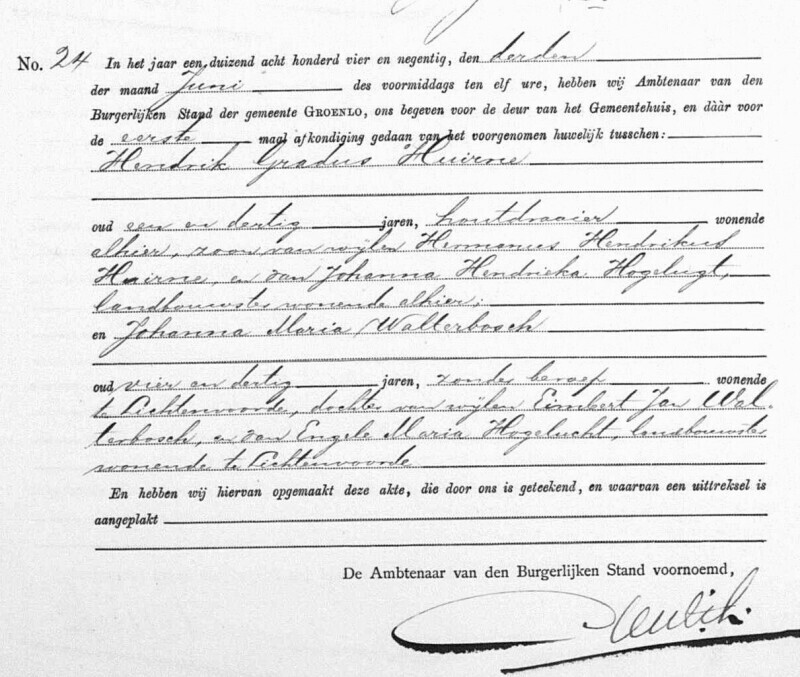 No. 24 In het jaar een duizend acht honderd vier en negentig, den derden
der maand Juni des voormiddags ten elf ure, hebben wij Ambtenaar van den
Burgerlijken Stand der gemeente GROENLO, ons begeven voor de deur van het Gemeentehuis, en dààr voor
de eerste maal afkondiging gedaan van het voorgenomen huwelijk tusschen:
Hendrik Gradus Huirne
oud een en dertig jaren, houtdraaier wonende
alhier, zoon van wijlen Hermanus Hendrikus
Huirne, en van Johanna Hendrieka Hogelugt,
landbouwster wonende alhier;
en Johanna Maria Wallerbosch
oud vier en dertig jaren, zonder beroep wonende
te Lichtenvoorde, dochter van wijlen Eimbert Jan Wal-
terbosch, en van Engele Maria Hogelucht, landbouwster
wonende te Lichtenvoorde
En hebben wij hiervan opgemaakt deze akte, die door ons is geteekend, en waarvan een uittreksel is
aangeplakt
De Ambtenaar van den Burgerlijken Stand voornoemd,